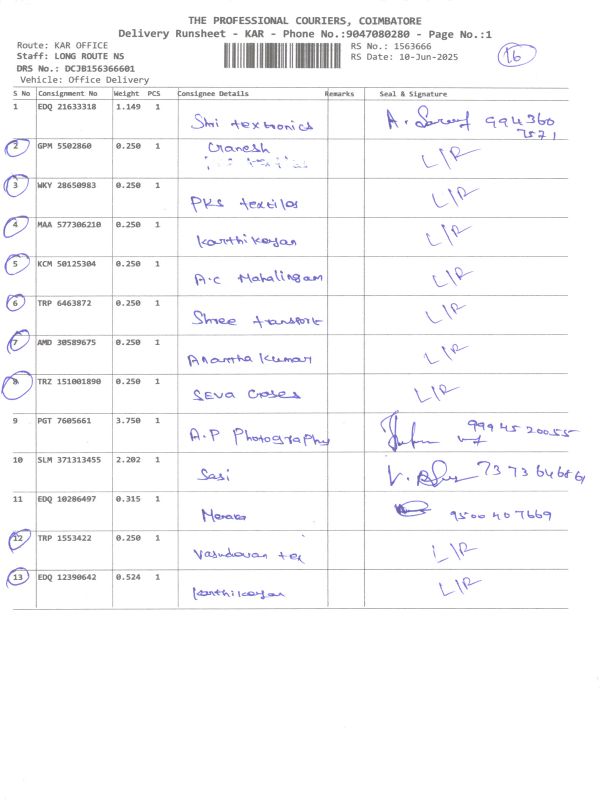 THE PROFESSIONAL COURIERS, COIMBATORE
Delivery Runsheet - KAR - Phone No.:9047080280 - Page No.:1
Route: KAR OFFICE RS No.: 1563666 16
Staff: LONG ROUTE NS RS Date: 10-Jun-2025
DRS No.: DCJB156366601
Vehicle: Office Delivery
S No Consignment No Weight PCS Consignee Details Remarks Seal & Signature
1 EDQ 21633318 1.149 1 Shri textronics 994360
7571
2 GPM 5502860 0.250 1 Cranesh L/R
3 WKY 28650983 0.250 1 PKS textiles L/R
4 MAA 577306210 0.250 1 Karthikeyan L/R
5 KCM 50125304 0.250 1 A.C Mahalingam L/R
6 TRP 6463872 0.250 1 Shree transport L/R
7 AMD 30589675 0.250 1 Anantha Kumar L/R
8 TRZ 151001890 0.250 1 SEVA Cases L/R
9 PGT 7605661 3.750 1 A.P Photography 9994520055
10 SLM 371313455 2.202 1 Sasi 7373646861
11 EDQ 10286497 0.315 1 9500407669
12 TRP 1553422 0.250 1 Vasudevan tex L/R
13 EDQ 12390642 0.524 1 Karthikeyan L/R